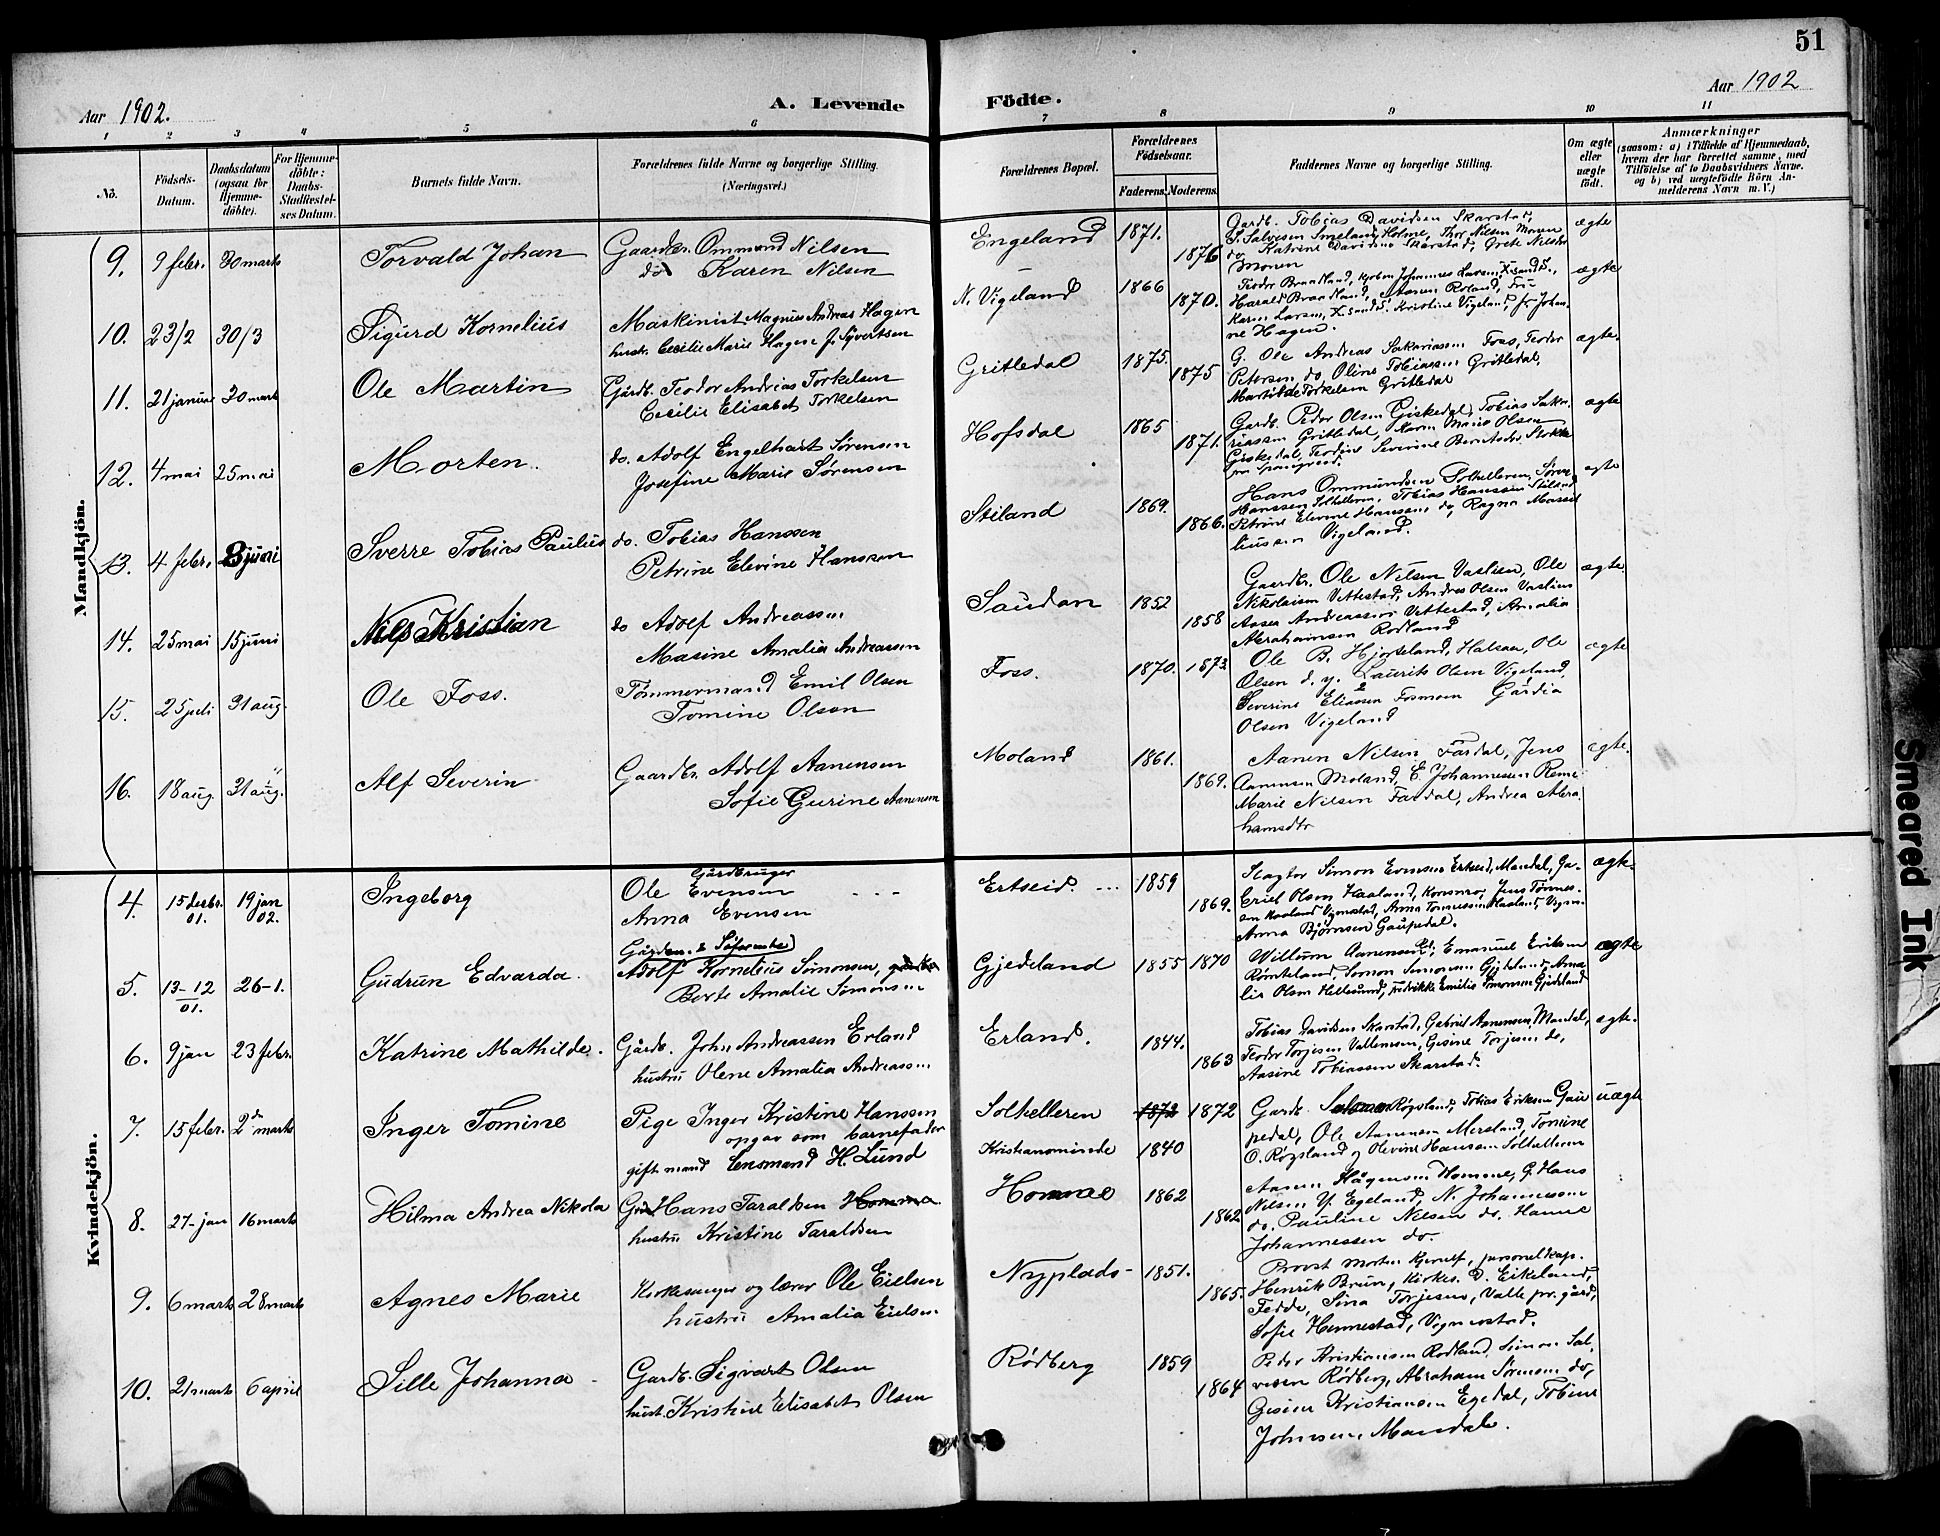 51
Aar 1902.
A. Levende
Födte.
Aar 1902
1
2
3
4
5
6
7
8
9
10
11
No.
Födsels-
Datum.
Daabsdatum
(ogsaa for
Hjemme-
döbte).
For Hjemme-
döbte:
Daabs-
Stadfæstel-
ses Datum.
Barnets fulde Navn.
Forældrenes fulde Navne og borgerlige Stilling.
(Næringsvei.)
Forældrenes Bopæl.
Forældrenes
Födselsaar.
Faderens.
Moderens.
Faddernes Navne og borgerlige Stilling.
Om ægte
eller
uægte
födt.
Anmærkninger
(saasom: a) i Tilfælde af Hjemmedaab,
hvem der har forrettet samme, med
Tilföielse af to Daabsvidners Navne.
og b) ved uægtefödte Börn An-
melderens Navn m. V.)
Mandkjön.
9. 9 febr. 30 marts Torvald Johan
Gaardbr. Ommund Nilsen
do Karen Nilsen
Engeland 1871. 1876
Gardb. Tobias Davidsen Skarstad,
S. Salvesen Smeland, Holme, Thor Nilsen Monen
do Katrine Davidsen Skarstad, Grete Nilsdr
Monen
ægte
10. 23/2 30/3 Sigurd Kornelius
Maskinist Magnus Andreas Hagen
hustr. Cecilie Marie Hagen f. Syvertsen
N. Vigeland 1866 1870.
Teodor Braadland, kjøbm Johannes Larsen, X.sand S.,
Harald Braadland, Aanen Roland, Fru
Karen Larsen, X.sand S. Kristine Vigeland, fr Johan-
ne Hagen.
ægte
11. 21 januar 30 mart Ole Martin
Gårdb. Teodor Andreas Torkelsen
Cecilie Elisabet Torkelsen
Gritledal 1875. 1875
G. Ole Andreas Sakariassen Foss, Teodor
Petersen do, Oline Tobiassen Gritledal,
Martilde Torkelsen Gritledal
ægte.
12. 4 mai 25 mai Morten.
do. Adolf Engelhart Sørensen
Josefine Marie Sørensen
Hofsdal 1865 1871.
Gardb. Peder Olsen Giskedal, Tobias Saka-
riassen Gritledal, Karen Marie Olsen
Giskedal, Teodine Severine Berntsdr
ægte
13. 4 febr. 8 juni Sverre Tobias Paulius
do. Tobias Hanssen
Petrine Elevine Hanssen
Stiland 1869. 1866.
Hans Ommundsen Solhelleren, Sørine
Hanssen Solhelleren, Tobias Hanssen Stiland
Petrine Elevine Hanssen do, Ragna Massel
liussen Vigeland.
ægte
14. 25 mai 15 juni Nils Kristian
do Adolf Andreassen
Masine Amalia Andreassen
Saudan 1852 1858
Gaardbr. Ole Nilsen Vaslien, Ole
Nikolaisen Vettestad, Andreas Olsen Vaslien
Aaser Andreassen Vettestad, Amalia
Abrahamsen Rodland
ægte.
15. 25 juli 31 aug. Ole Foss.
Tømmermand Emil Olsen
Tomine Olsen
Foss. 1870. 1873.
Ole B. Hjorteland, Halsaa, Ole
Olsen d. y. Laurits Olsen Vigeland,
Severine Eliassen Fosmoen Gårdia
Olsen Vigeland
ægte
16. 18 aug. 31 aug. Alf Severin
Gaardbr. Adolf Aanensen
Sofie Gurine Aanensen
Moland 1861. 1869.
Aanen Nilsen Fardal, Jens
Aanensen Moland, E. Johannessen Reme
Marie Nilsen Fardal, Andrea Abra-
hamsdtr
ægte.
Kvindekjön.
4. 15 decbr. 01. 19 jan 02. Ingeborg
Gårdbruger
Ole Evensen
Anna Evensen
Ertseid. 1859 1869.
Slagter Simon Evensen Ertseid, Mandal, Ga-
briel Olsen Haaland, Konsmo, Jens Tønnes-
sen Haaland Vigmostad, Anna Tønnessen Haaland, Vigm.
Anna Bjørnsen Gaupedal.
ægte.
5. 13-12 01. 26-1. Gudrun Edvarda.
Adolf Kornelius Simonsen,
Berte Amalie Simonsen
Gjedeland 1855 1870
Willum Aanensen, Emanuel Eriksen
Rømteland, Simon Simonsen Gjedeland, Ama-
lie Olsen Hellesund, Fredrikke Emilie Simonsen Gjedeland
ægte
6. 9 jan 23 febr. Katrine Mathilde.
Gårdb. John Andreassen Erland
hustru Olene Amalia Andreassen
Erland. 1844. 1863
Tobias Davidsen Skarstad, Gabriel Aanensen, Mandal,
Teodor Torjesen Vallemoen, Gesine Torjesen do,
Aasine Tobiassen Skarstad.
ægte.
7. 15 febr. 2d marts Inger Tomine
Pige Inger Kristine Hanssen
opgav som barnefader
gift mand Lensmand H. Lund
Solhelleren 1872 1872
Kristiansminde 1840
Gardb. Salomon Røgsland, Tobias Eriksen Gau
pedal, Ole Aanensen Mersland, Tomine
O. Røgsland og Olevine Hanssen Solhelleren
uægte
8. 27 jan 16 marts Hilma Andrea Nikola
Hans Taraldsen Homme
hustru Kristine Taraldsen
Homme 1862 1862
Aanen Hågensen Homme, G. Hans
Nilsen Y. Egeland, N. Johannessen
do. Pauline Nilsen do. Hanne
Johannessen do.
9. 6 marts 28 marts Agnes Marie
Kirkesanger og lærer Ole Eielsen
hustru Amalia Eielsen
Nyplads 1851. 1865.
Provst Morten Kjerulf, personelkap.
Henrik Brun, Kirkes. D. Eikeland,
Fedde, Sina Torjesen, Valle pr. gård,
Sofie Hennestad, Vigmostad.
10. 21 marts 6 april Sille Johanna
Gardb. Sigvart Olsen
hust. Kristine Elisabet Olsen
Rødberg 1859 1864
Peder Kristiansen Rodland, Simon Sal-
vesen Rødberg, Abraham Sørensen do,
Gesine Kristiansen Egedal, Tobine
Johnsen, Mandal.
Smeared Ink